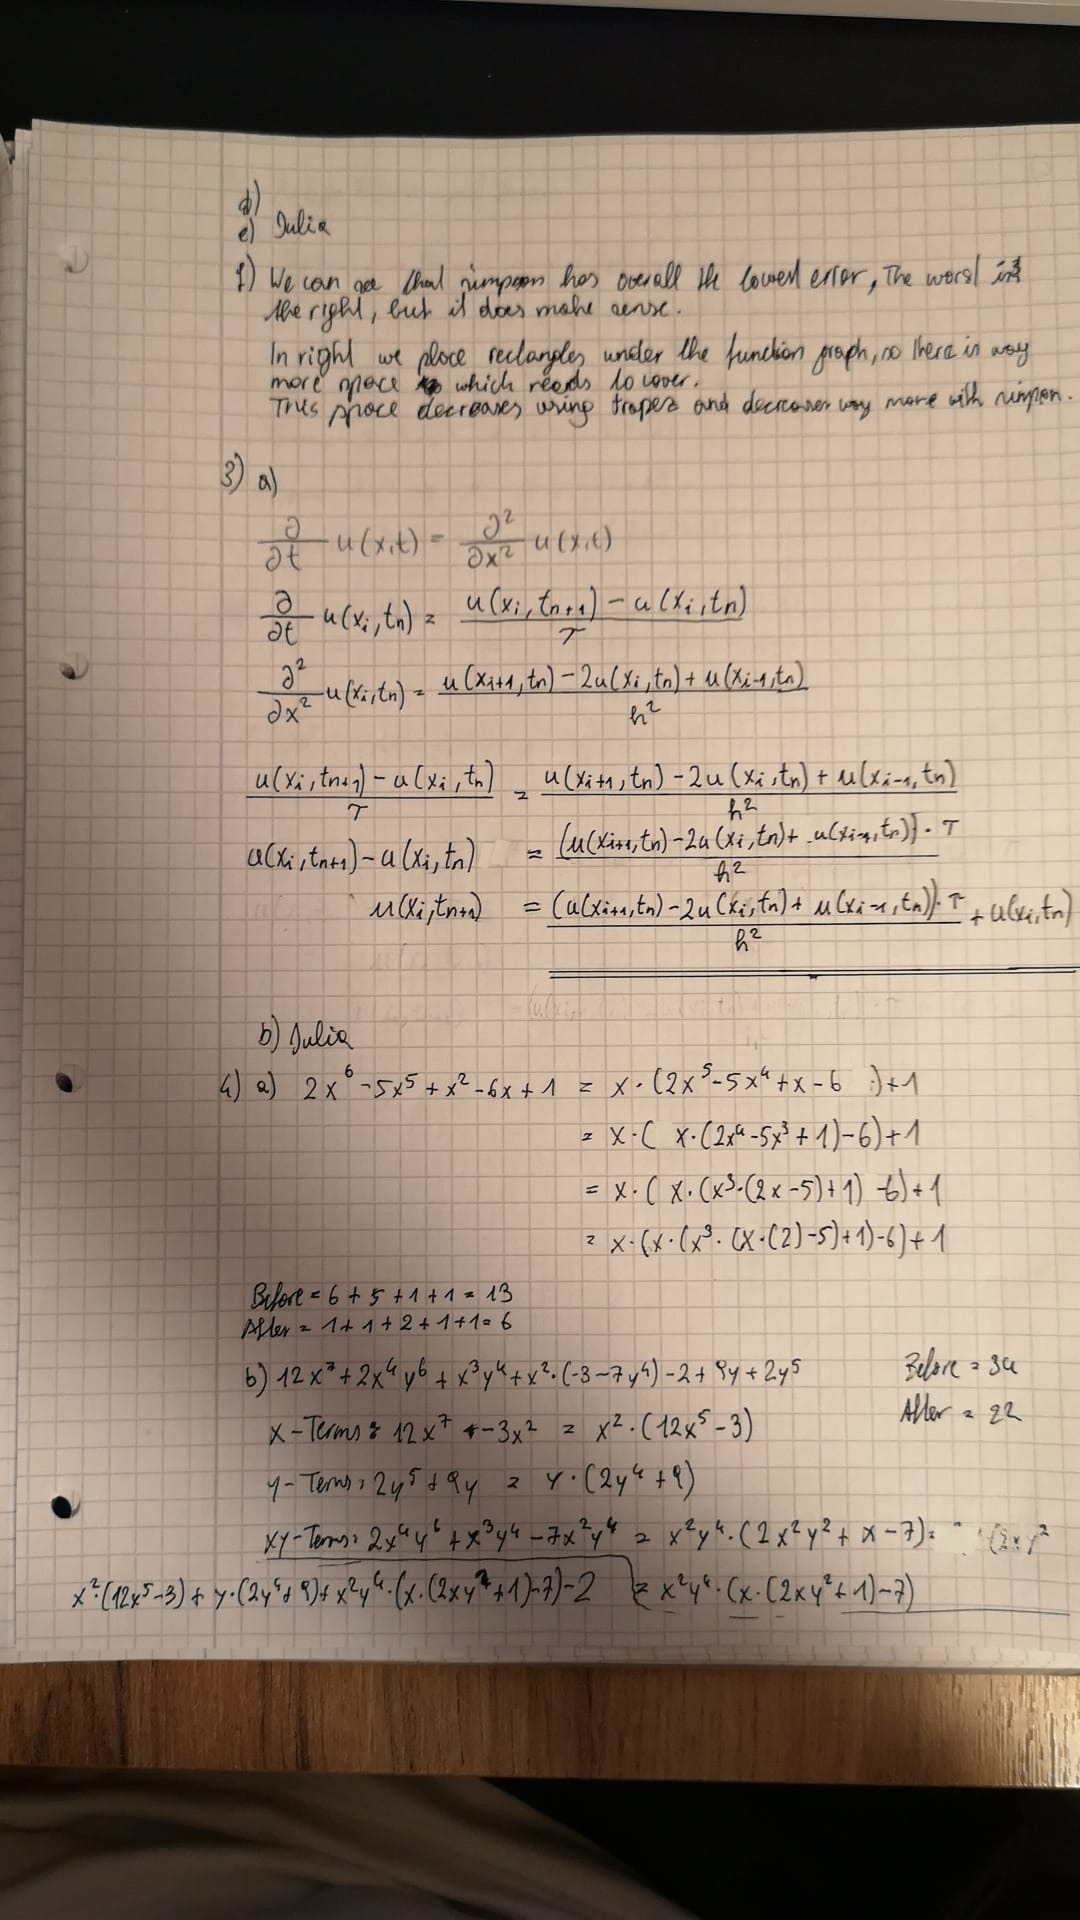 d)
e) Julia
f) We can see that simpson has overall the lowest error, The worst is
the right, but it does make sense.
In right we place rectangles under the function graph, so there is way
more space which needs to cover.
This space decreases using trapez and decreases way more with simpson.
3) a)
∂/∂t u(x,t) = ∂²/∂x² u(x,t)
∂/∂t u(xᵢ,tₙ) = (u(xᵢ,tₙ₊₁) - u(xᵢ,tₙ))/τ
∂²/∂x² u(xᵢ,tₙ) = (u(xᵢ₊₁,tₙ) - 2u(xᵢ,tₙ) + u(xᵢ₋₁,tₙ))/h²
(u(xᵢ,tₙ₊₁) - u(xᵢ,tₙ))/τ = (u(xᵢ₊₁,tₙ) - 2u(xᵢ,tₙ) + u(xᵢ₋₁,tₙ))/h²
u(xᵢ,tₙ₊₁) - u(xᵢ,tₙ) = (u(xᵢ₊₁,tₙ) - 2u(xᵢ,tₙ) + u(xᵢ₋₁,tₙ))·τ/h²
u(xᵢ,tₙ₊₁) = (u(xᵢ₊₁,tₙ) - 2u(xᵢ,tₙ) + u(xᵢ₋₁,tₙ))·τ/h² + u(xᵢ,tₙ)
b) Julia
4) a) 2x⁶ - 5x⁵ + x² - 6x + 1 = x·(2x⁵ - 5x⁴ + x - 6) + 1
= x·(x·(2x⁴ - 5x³ + 1) - 6) + 1
= x·(x·(x³·(2x - 5) + 1) - 6) + 1
= x·(x·(x³·(x·(2) - 5) + 1) - 6) + 1
Before = 6 + 5 + 1 + 1 = 13
After = 1 + 1 + 2 + 1 + 1 = 6
b) 12x⁷ + 2x⁴y⁶ + x³y⁴ + x²·(-3 - 7y⁴) - 2 + 9y + 2y⁵
Before = 34
After = 22
x-Terms: 12x⁷ - 3x² = x²·(12x⁵ - 3)
y-Terms: 2y⁵ + 9y = y·(2y⁴ + 9)
xy-Terms: 2x⁴y⁶ + x³y⁴ - 7x²y⁴ = x²y⁴·(2x²y² + x - 7) =
= x²y⁴·(x·(2xy² + 1) - 7)
x²·(12x⁵ - 3) + y·(2y⁴ + 9) + x²y⁴·(x·(2xy² + 1) - 7) - 2